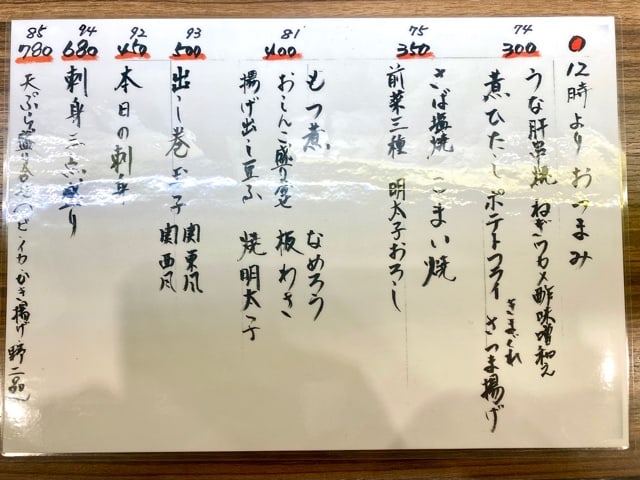 12時よりおつまみ
74
300
うな肝串焼 ねぎつめ酢味噌和え
煮びたし ポテトフライ きまぐれ さつま揚げ
75
350
さば塩焼 こまい焼
前菜三種 明太子おろし
81
400
もつ煮 なめろう
おしんこ盛り合せ 板わさ
揚げ出し豆ふ 焼明太子
93
500
出し巻玉子 関東風 関西風
92
450
本日の刺身
94
680
刺身三点盛り
85
780
天ぷら盛り合せ エビ・イカ・かき揚げ・野二品